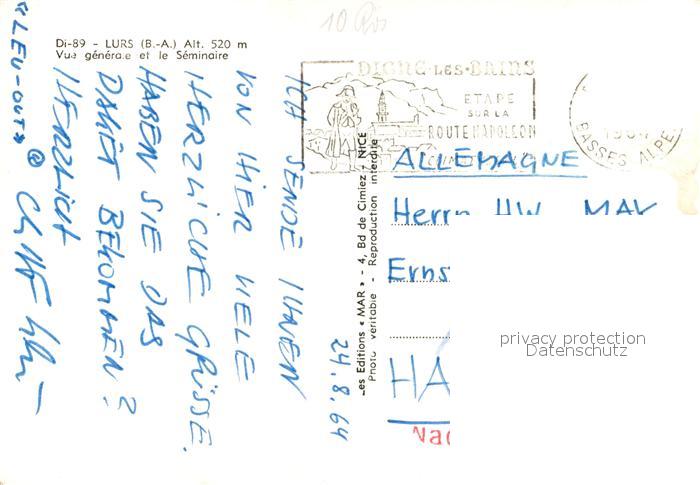 10
Di-89 - LURS (B.-A.) Alt. 520 m
Vue générale et le Séminaire
DIGNE-LES-BAINS
ETAPE
SUR LA
ROUTE NAPOLEON
BASSES ALPES
Les Editions « MAR » - 4, Bd de Cimiez - NICE
Photo véritable - Reproduction interdite
24.8.64
ICH SENDE IHNEN
VON HIER VIELE
HERZLICHE GRÜSSE.
HABEN SIE DAS
BEKOMMEN?
HERZLICHT
ALLEMAGNE
Herrn HW. MAY
Erns
HA
Nac
privacy protection
Datenschutz